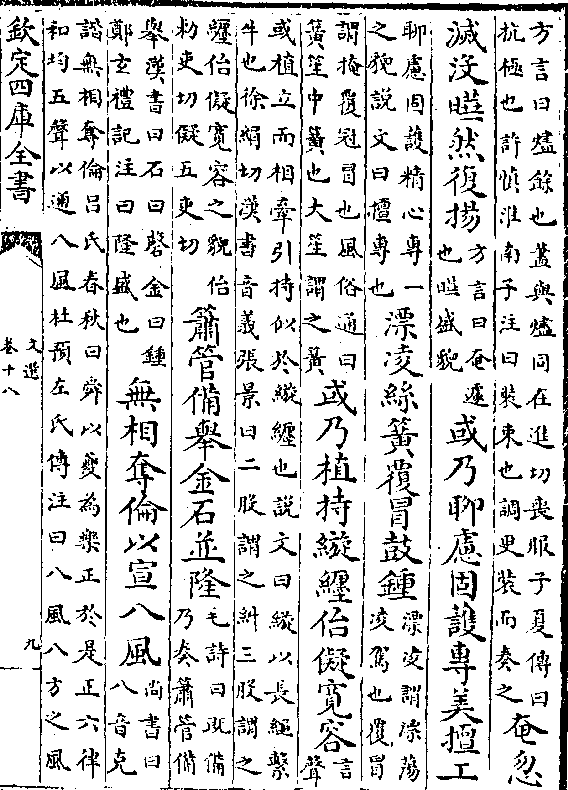 方言曰燼餘也藎與燼同在進切喪服子夏傳曰
杭極也許慎淮南子注曰裝束也調更裝而奏之
奄忽
滅沒曄然復揚
方言曰奄遽
也曄盛貌
或乃聊慮固護專美擅工
聊慮固護精心專一
之貌説文曰擅專也
漂凌絲簧覆冒鼓鍾
漂凌謂漂蕩
凌駕也覆冒
謂掩覆冠冒也風俗通曰
簧笙中簧也大笙謂之簧
或乃植持縼纆佁儗寛容
言
聲
或植立而相牽引持似於縼纆也説文曰縼以長繩繫
牛也徐絹切漢書音義張景曰二股謂之糾三股謂之
纆佁儗寛容之貌佁
粉吏切儗五吏切
簫管備舉金石並隆
毛詩曰既備
乃奏簫管備
舉漢書曰石曰磬金曰鍾
鄭玄禮記注曰隆盛也
無相奪倫以宣八風
尚書曰
八音克
諧無相奪倫呂氏春秋曰舜以夔為樂正於是正六律
和均五聲以通八風杜預左氏傳注曰八風八方之風
欽定四庫全書
文選
卷十八
九